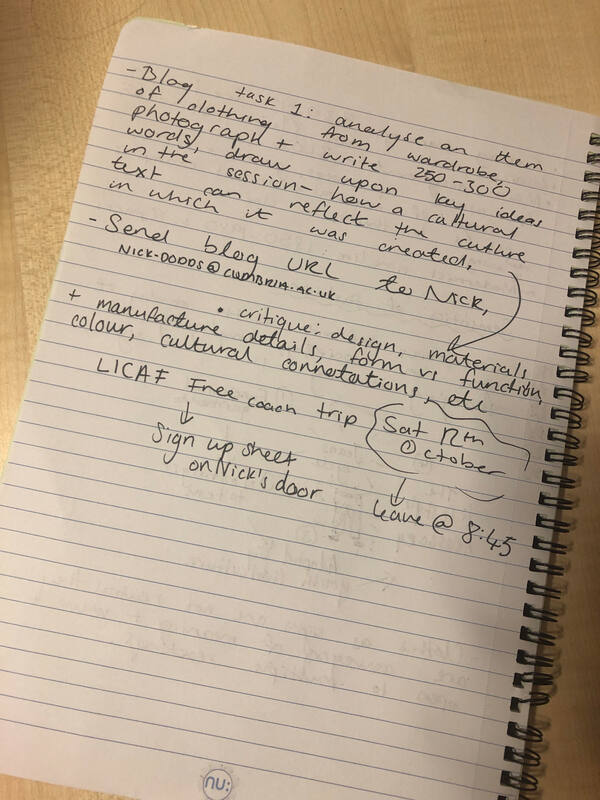 - Blog task 1: analyse an item
of clothing from wardrobe,
photograph + write 250-300
words, draw upon key ideas
in the session - how a cultural
text can reflect the culture
in which it was created,
- Send blog URL to Nick,
NICK.DODDS@CUMBRIA.AC.UK
• critique: design, materials
+ manufacture details, form vs function,
colour, cultural connotations, etc
LICAF Free coach trip Sat 12th
October
Sign up sheet
on Nick's door
leave @ 8:45
nu: